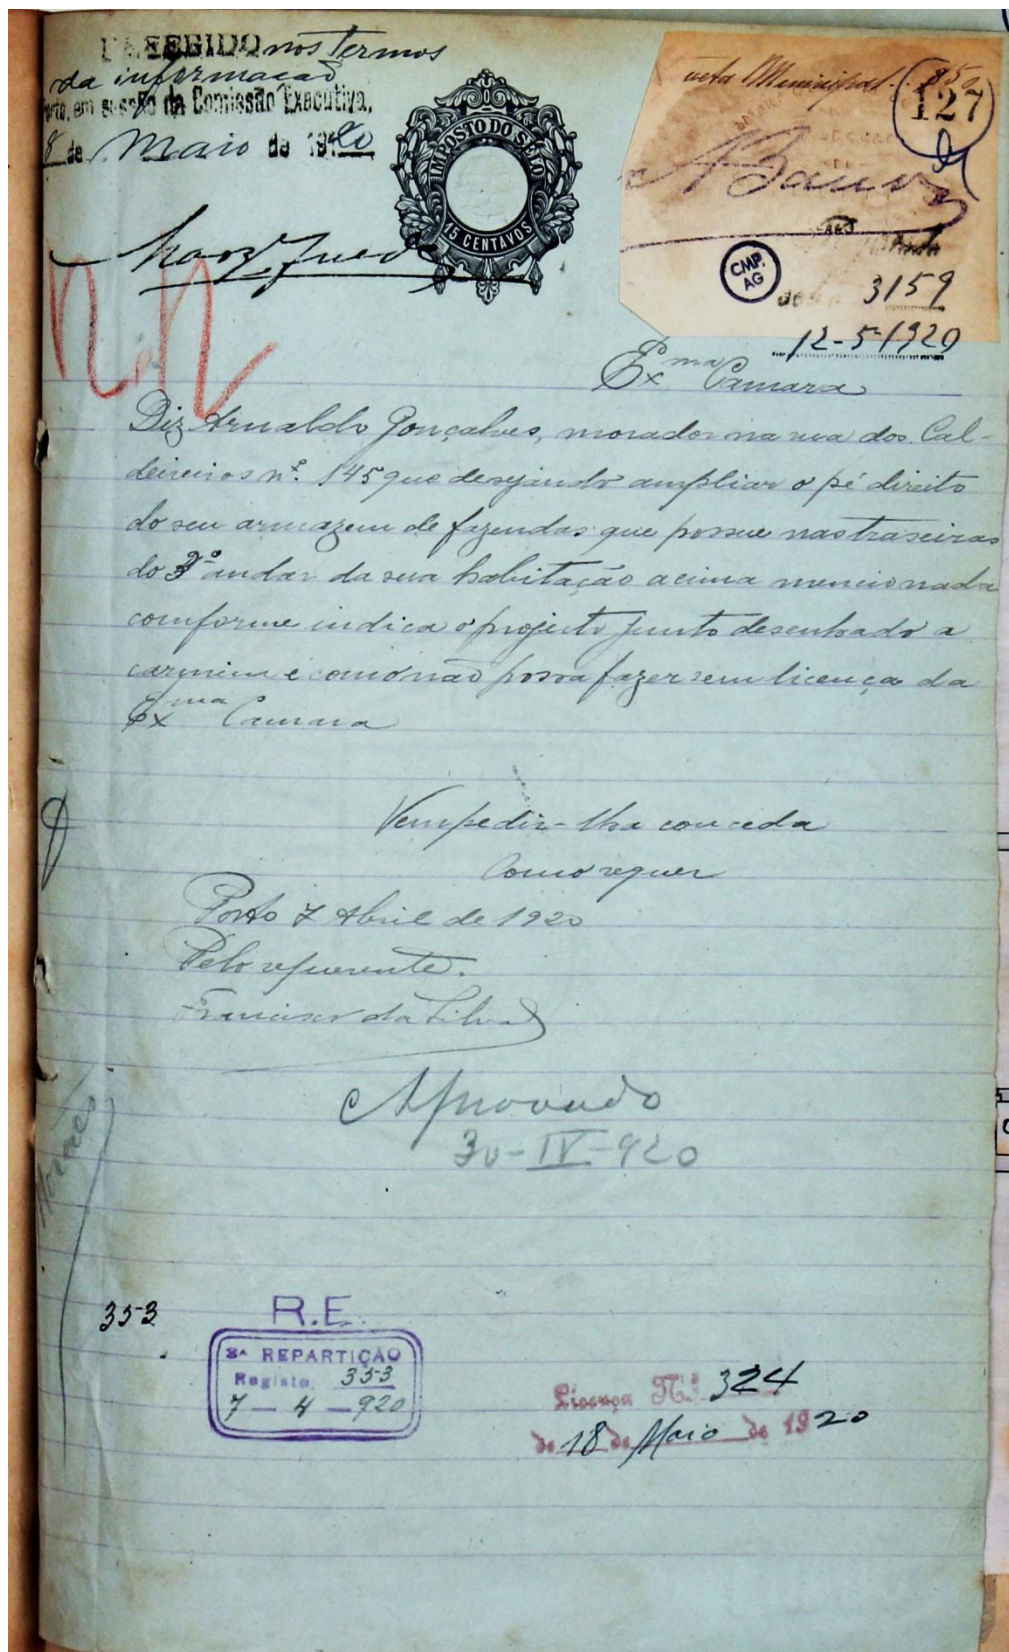 DEFERIDO nos termos
da informação
Porto, em sessão da Comissão Executiva,
8 de Maio de 1920
IMPOSTO DO SELO
15 CENTAVOS
Municipal
127
CMP.
AG
3159
12-5-1920
Exma Camara
Diz Arnaldo Gonçalves, morador na rua dos Cal-
deireiros nº. 145 que desejando ampliar o pé direito
do seu armazem de fazendas que possue nas traseiras
do 3º andar da sua habitação acima mencionada
comforme indica o projecto junto desenhado a
carmim e como não possa fazer sem licença da
Exma Camara
Vem pedir-lha conceda
como requer
Porto 7 Abril de 1920
Pelo requerente.
Francisco da Silva
Aprovado
30-IV-920
353
R.E.
3ª REPARTIÇÃO
Registo 353
7 — 4 — 920
Licença N.º 324
de 18 de Maio de 1920